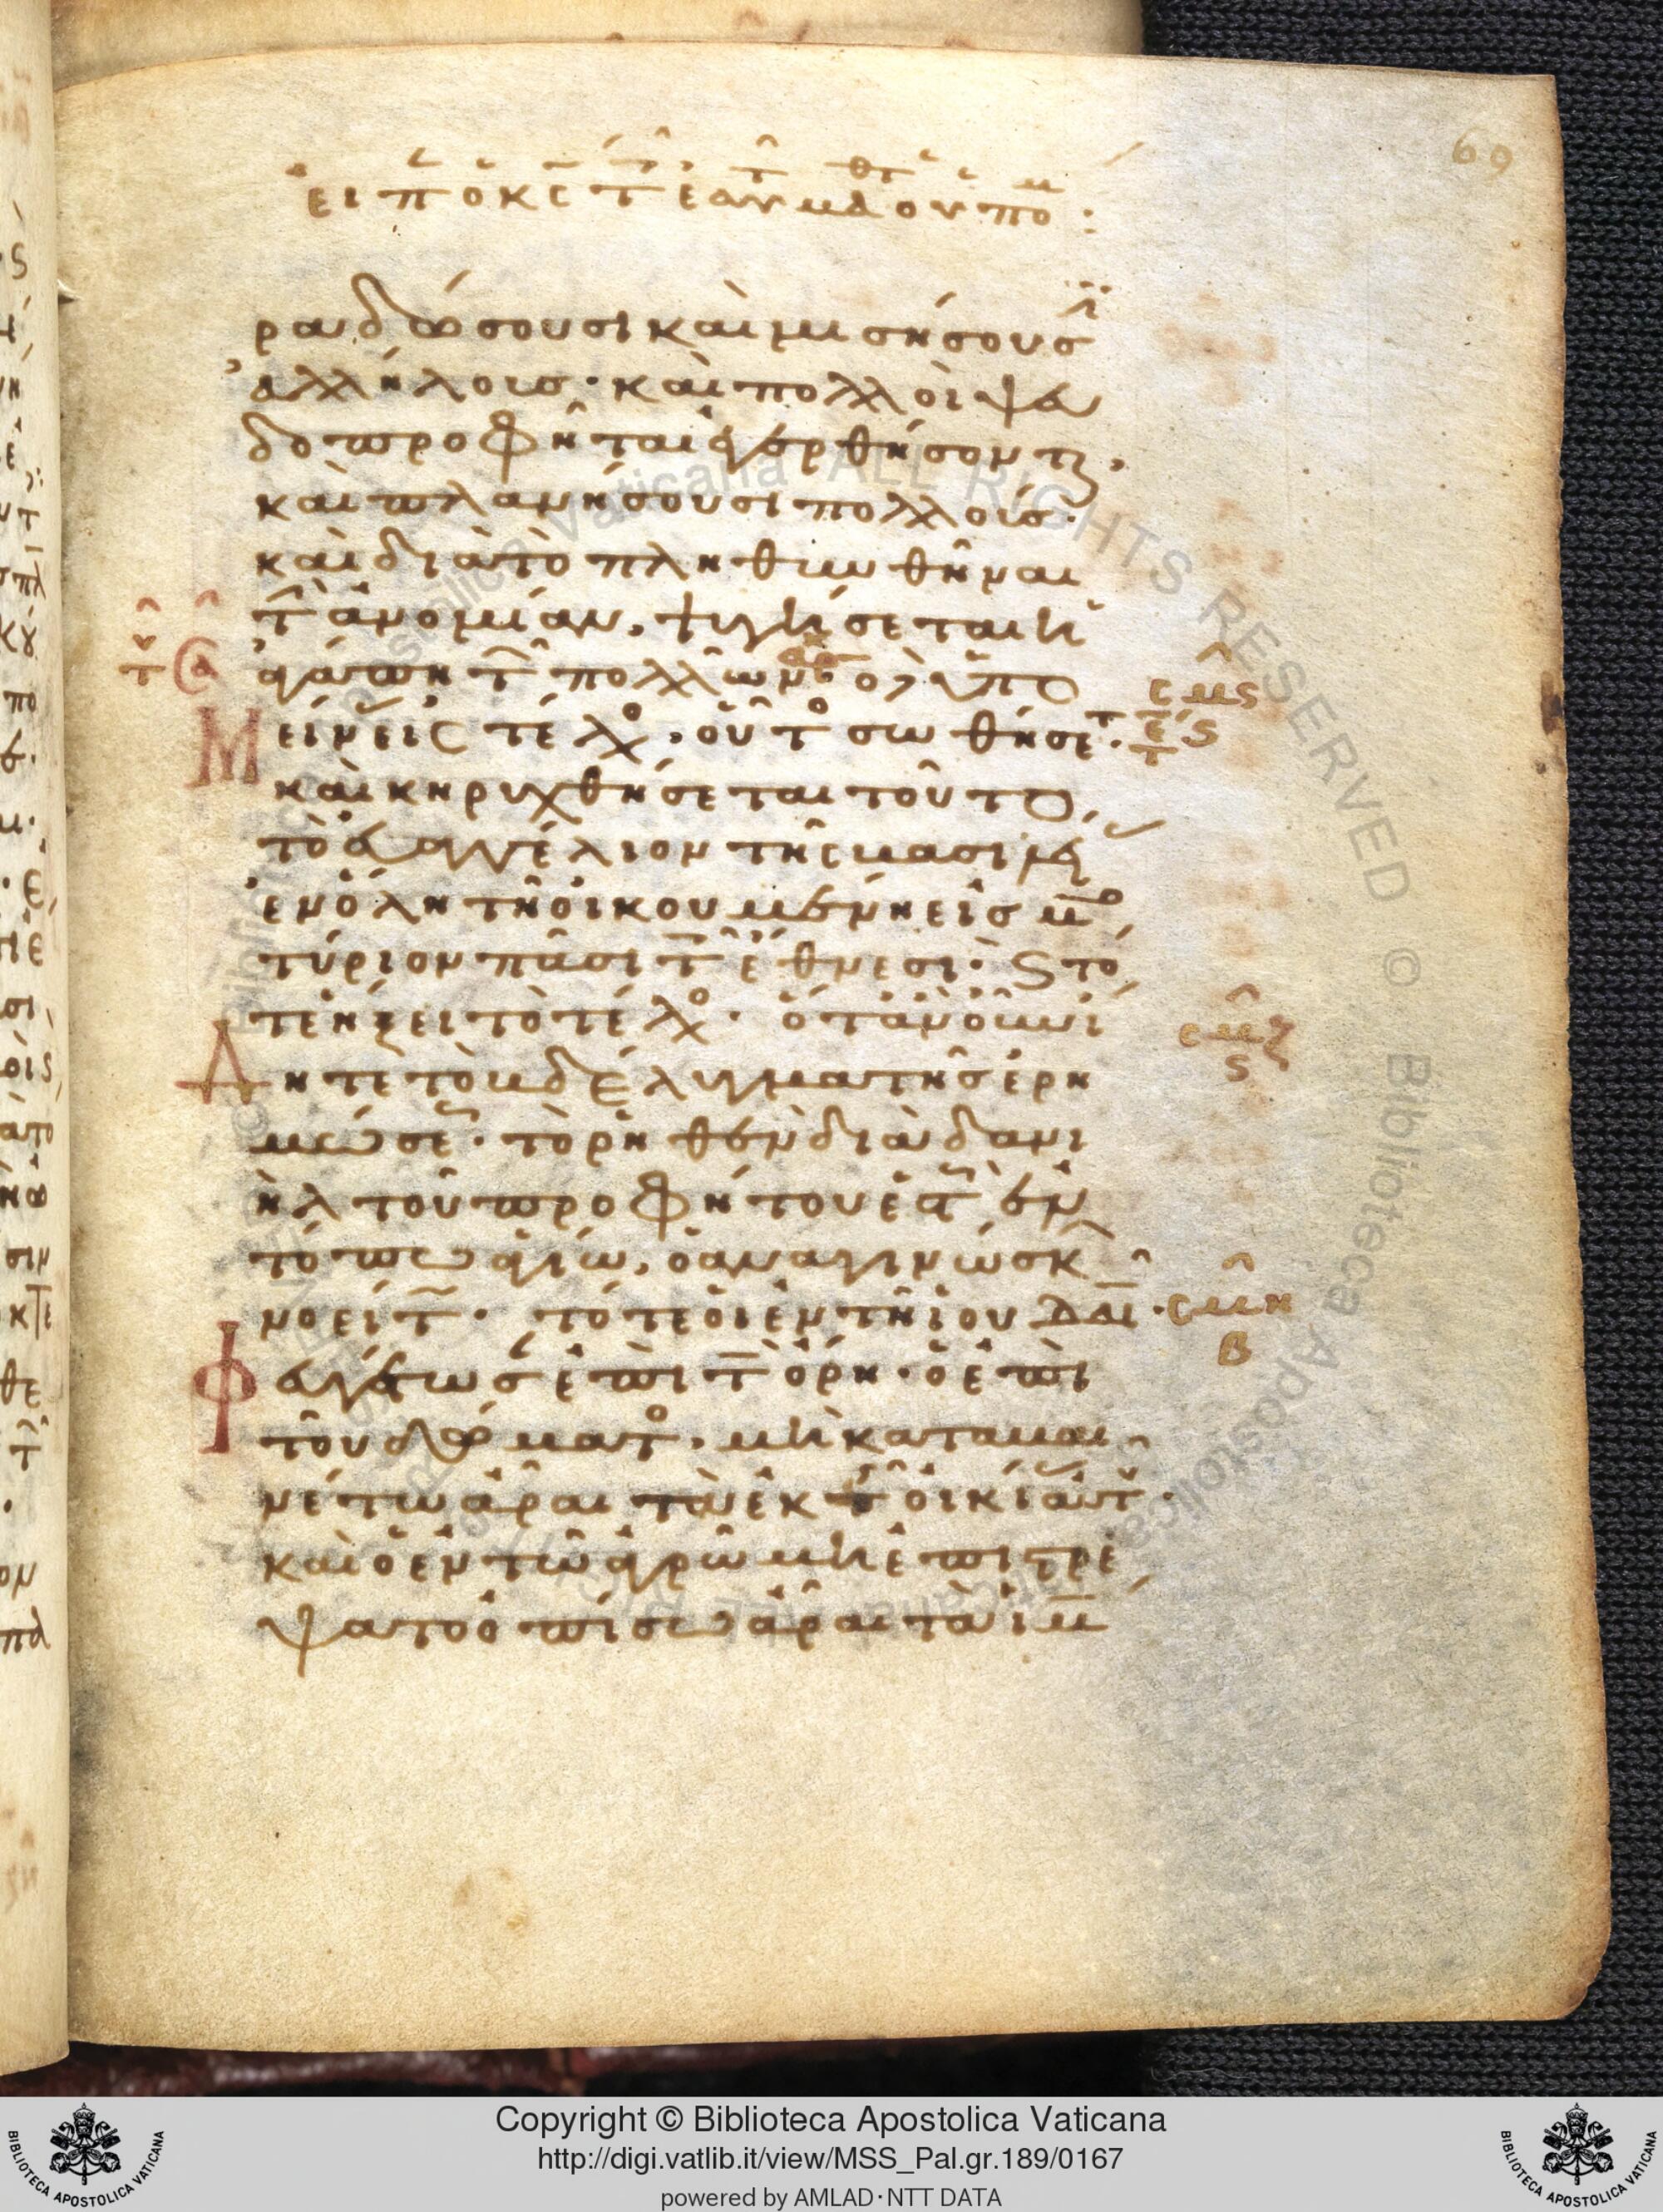 69
ραδώσουσι καὶ μισήσουσ
ἀλλήλοις· καὶ πολλοὶ ψευ
δοπροφῆται ἐγερθήσονται,
καὶ πλανήσουσι πολλούς·
καὶ διὰ τὸ πληθυνθῆναι
τὴν ἀνομίαν, ψυγήσεται ἡ
ἀγάπη τῶν πολλῶν ὁ δὲ ὑπο
μείνας εἰς τέλος, οὗτος σωθήσεται·
καὶ κηρυχθήσεται τοῦτο
τὸ εὐαγγέλιον τῆς βασιλείας
ἐν ὅλη τῆ οἰκουμένη εἰς μαρ
τύριον πᾶσι τοῖς ἔθνεσι· καὶ τό
τε ἥξει τὸ τέλος· ὅταν οὖν ἴ
δητε τὸ βδέλυγμα τῆς ἐρη
μώσεως· τὸ ρηθὲν διὰ δανι
ὴλ τοῦ προφήτου ἑστὼς ἐν
τόπω ἁγίω, ὁ ἀναγινώσκων
νοείτω· τότε οἱ ἐν τῆ ἰουδαία·
φευγέτωσαν ἐπὶ τὰ ὄρη· ὁ ἐπὶ
τοῦ δώματος, μὴ καταβαι
νέτω ἆραι τὰ ἐκ τῆς οἰκίας αὐτοῦ·
καὶ ὁ ἐν τῶ ἀγρῶ μὴ ἐπιστρε
ψάτω ὀπίσω ἆραι τὰ ἱμά
Copyright © Biblioteca Apostolica Vaticana
http://digi.vatlib.it/view/MSS_Pal.gr.189/0167
powered by AMLAD·NTT DATA
BIBLIOTECA APOSTOLICA VATICANA
BIBLIOTECA APOSTOLICA VATICANA